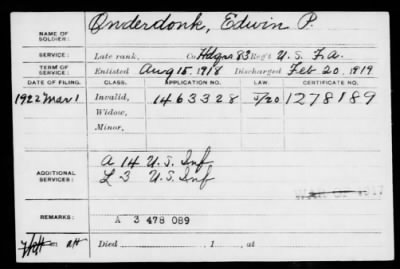 NAME OF SOLDIER: Onderdonk, Edwin P.
SERVICE: Late rank, Co. Hdqrs 83 Reg't U. S. F. A.
TERM OF SERVICE: Enlisted Aug 15, 1918 Discharged Feb 20, 1919
DATE OF FILING. CLASS. APPLICATION NO. LAW. CERTIFICATE NO.
1922 Mar 1 Invalid, 1463328 1278189
Widow,
Minor,
ADDITIONAL SERVICES: A 14 U. S. Inf
L 3 U. S. Inf
REMARKS: A 3 478 089
Died , 1 , at